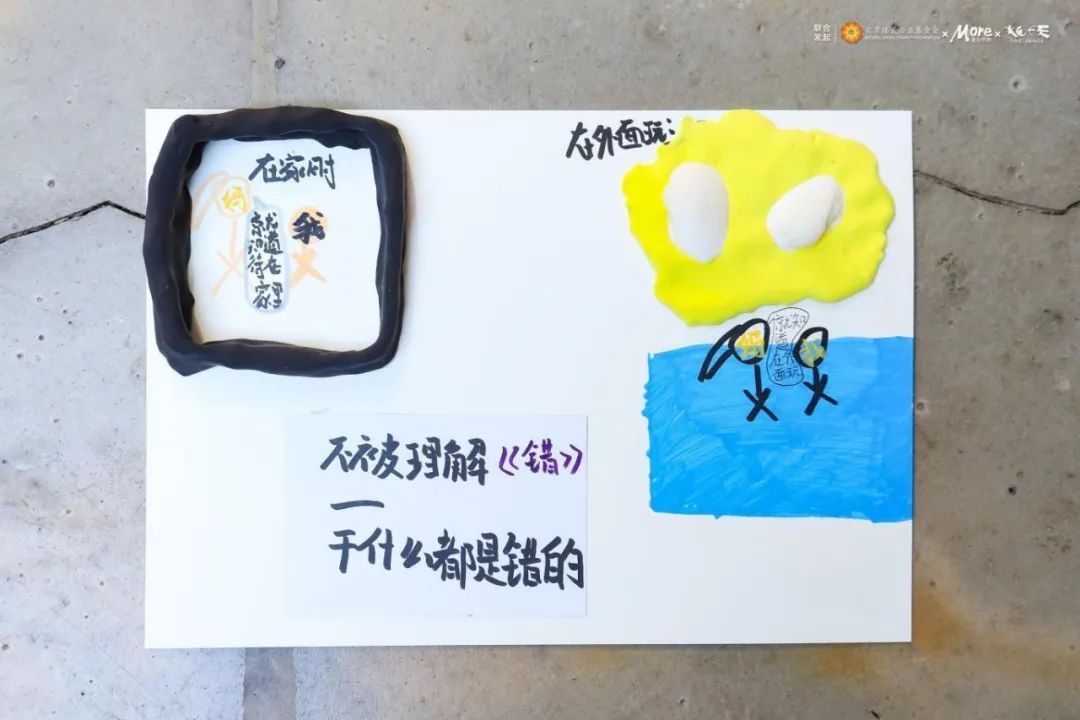 联合
发起
More
在家时
妈
我
就
知道
待在
家里
在外面玩：
妈
我
就知
道
在外
面玩
不被理解《错》
—
干什么都是错的